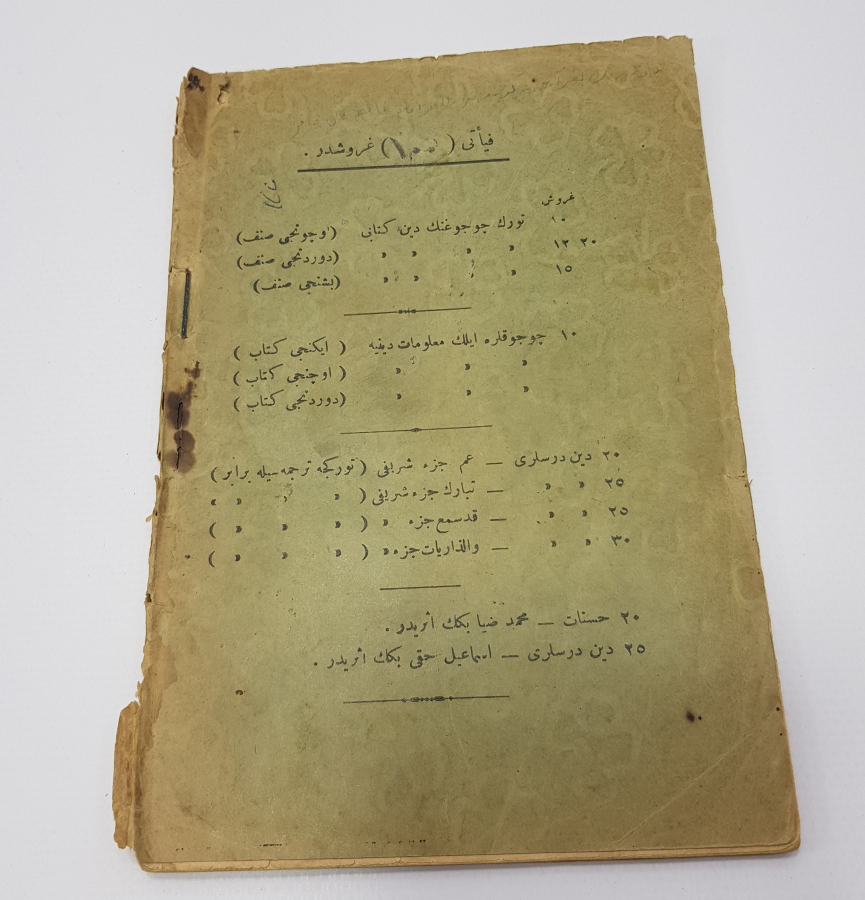 فيأتى ( ) غروشدر .
غروش
١٠ تورك چوجوغنك دين كتابى (اوچونجى صنف)
٢٠ ١٢ » » » » (دوردنجى صنف)
١٥ » » » » (بشنجى صنف)
١٠ چوجوقلره ايلك معلومات دينيه ( ايكنجى كتاب )
» » » ( اوچنجى كتاب )
» » » (دوردنجى كتاب )
٢٠ دين درسلرى — عم جزء شريفى (توركجه ترجمه سيله برابر )
٢٥ » » — تبارك جزء شريفى ( » » » »
٢٥ » » — قدسمع جزء » ( » » » )
٣٠ » » — والذاريات جزء » ( » » » )
٢٠ حسنات — محمد ضيا بكك اثريدر .
٢٥ دين درسلرى — اسماعيل حقى بكك اثريدر .